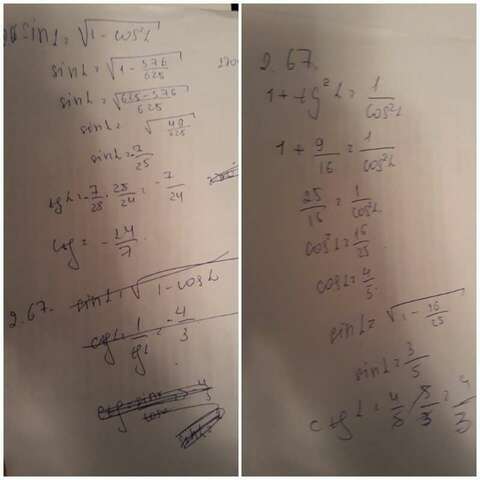 sin L = √1 - cos²L
sin L = √1 - 576/625
sin L = √625-576/625
sin L = √49/625
sin L = -7/25
tg L = -7/25 · 25/24 = -7/24
ctg = -24/7
2.67. sin L = √1 - cos L
ctg L = 1/tg L = -4/3
2.67.
1 + tg²L = 1/cos²L
1 + 9/16 = 1/cos²L
25/16 = 1/cos²L
cos²L = 16/25
cos L = 4/5
sin L = √1 - 16/25
sin L = 3/5
ctg L = 4/5 · 5/3 = 4/3